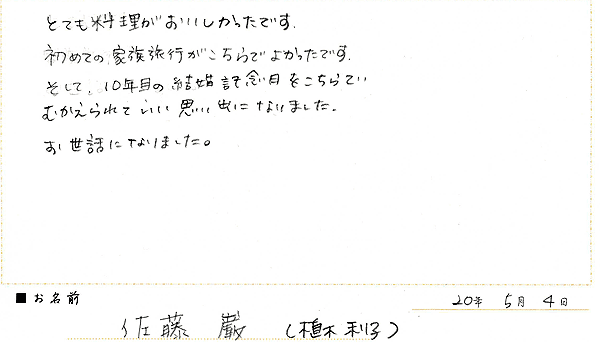 とても料理がおいしかったです.
初めての家族旅行がこちらでよかったです.
そして、10年目の結婚記念日をこちらで
むかえられていい思い出になりました.
お世話になりました。
■お名前
20年 5月 4日
佐藤 巌 (植木利子)